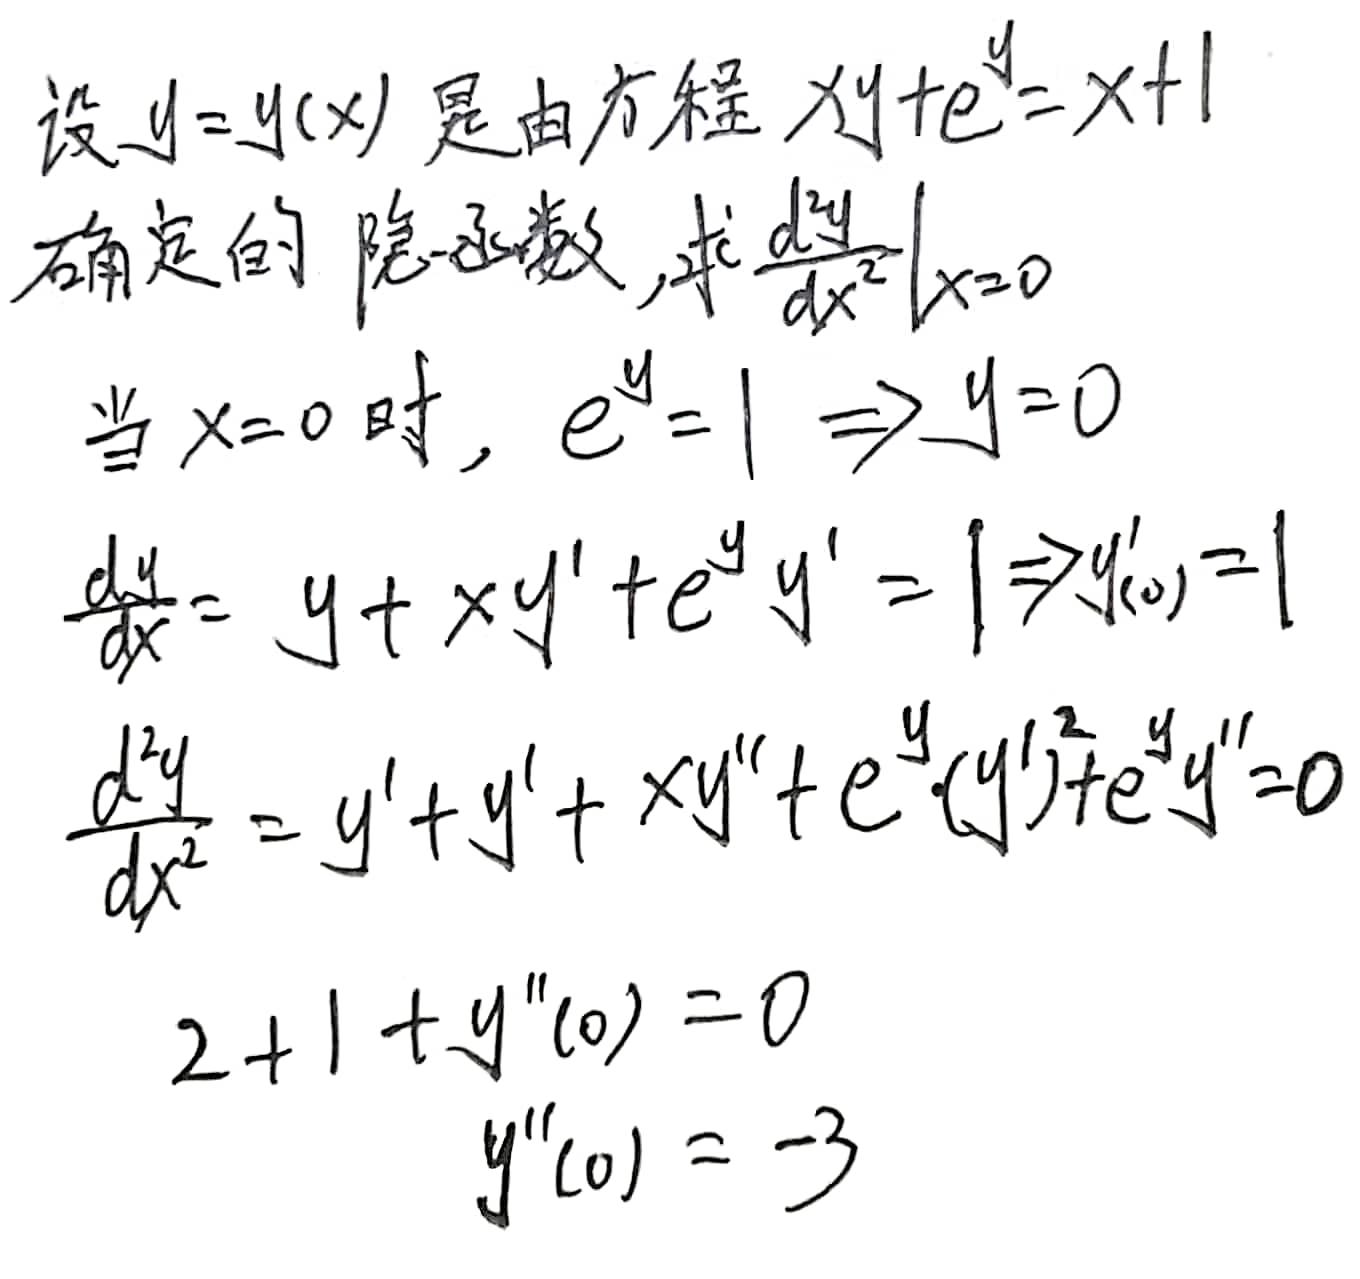 设 y=y(x) 是由方程 xy+e^y=x+1
确定的隐函数,求 d²y/dx² |x=0
当 x=0 时, e^y=1 ⇒ y=0
dy/dx = y+xy'+e^y y'=1⇒y'(0)=1
d²y/dx² = y'+y'+xy''+e^y·(y')²+e^y y''=0
2+1+y''(0)=0
y''(0)=-3